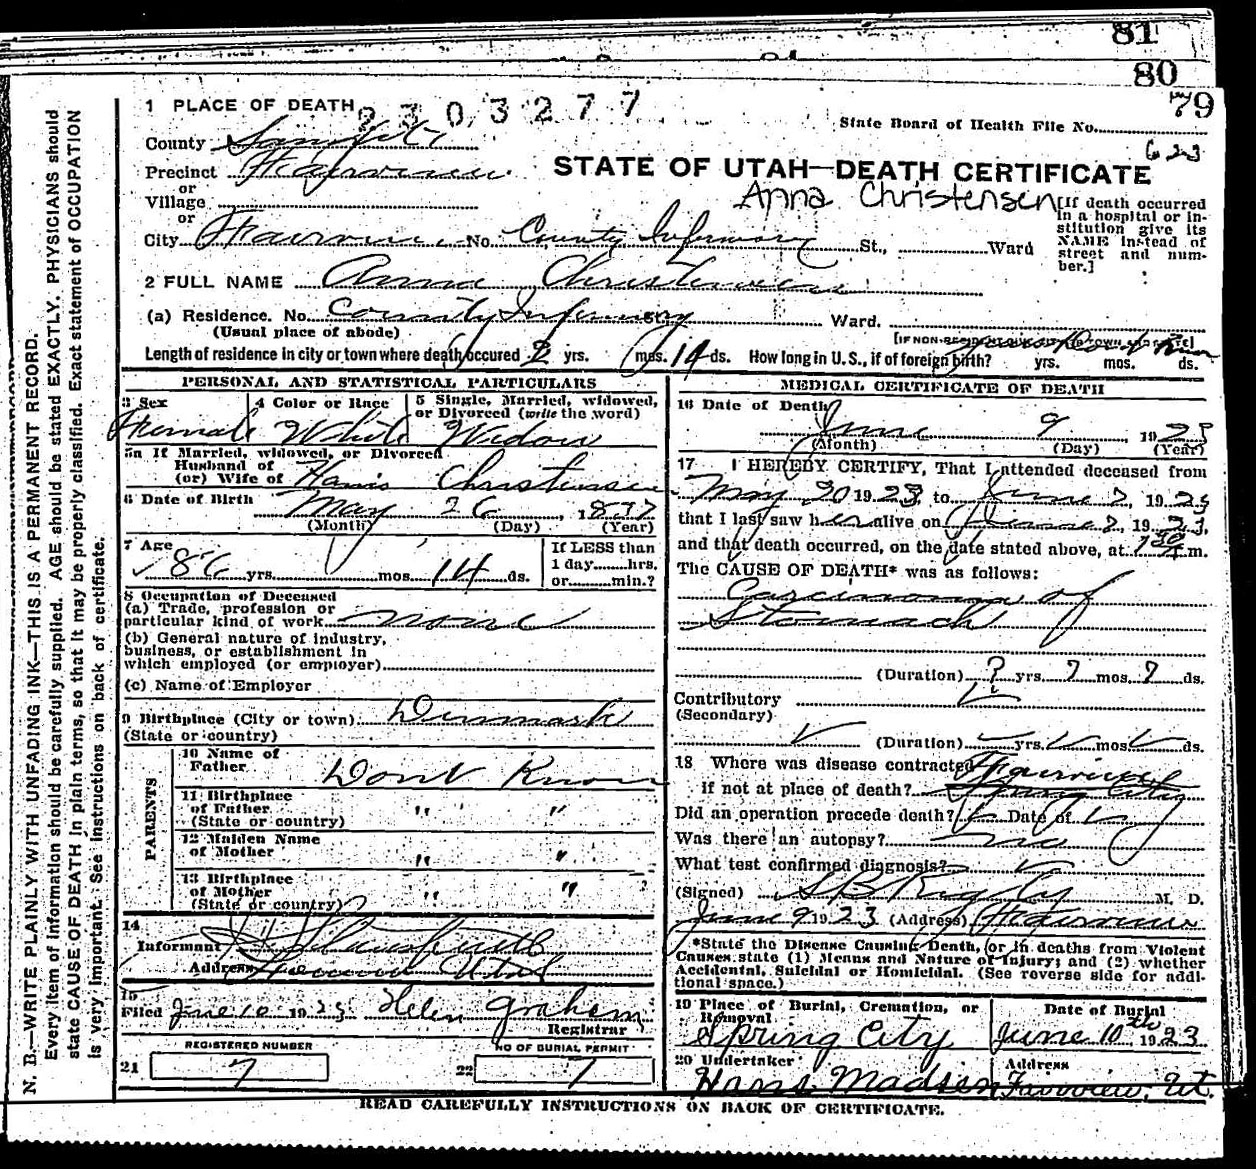 81
80
79
1 PLACE OF DEATH
2303277
State Board of Health File No.
623
County Sanpete
Precinct Fairview
STATE OF UTAH—DEATH CERTIFICATE
or
Village
Anna Christensen
or
City Fairview No. County Infirmary St., Ward
[If death occurred
in a hospital or in-
stitution give its
NAME instead of
street and num-
ber.]
2 FULL NAME Anna Christensen
(a) Residence. No. County Infirmary St. Ward.
(Usual place of abode)
Length of residence in city or town where death occured 2 yrs. mos. 14 ds. How long in U.S., if of foreign birth? yrs. mos. ds.
PERSONAL AND STATISTICAL PARTICULARS
3 Sex 4 Color or Race 5 Single, Married, widowed,
or Divorced (write the word)
Female White Widow
5a If Married, widowed, or Divorced
Husband of
(or) Wife of Hans Christensen
6 Date of Birth May 26 1837
(Month) (Day) (Year)
7 Age If LESS than
86 yrs. mos. 14 ds. 1 day hrs.
or min.?
8 Occupation of Deceased
(a) Trade, profession or
particular kind of work none
(b) General nature of industry,
business, or establishment in
which employed (or employer)
(c) Name of Employer
9 Birthplace (City or town) Denmark
(State or country)
PARENTS
10 Name of
Father Dont Know
11 Birthplace
of Father " "
(State or country)
12 Maiden Name
of Mother " "
13 Birthplace
of Mother " "
(State or country)
14
Informant
Address Utah
15
Filed June 10 1923 Helen Graham
Registrar
REGISTERED NUMBER NO OF BURIAL PERMIT
21 7 22 7
MEDICAL CERTIFICATE OF DEATH
16 Date of Death
June 9 1923
(Month) (Day) (Year)
17 I HEREBY CERTIFY, That I attended deceased from
May 20 1923, to June 7, 1923
that I last saw her alive on June 7, 1923,
and that death occurred, on the date stated above, at m.
The CAUSE OF DEATH* was as follows:
Carcinoma of
Stomach
(Duration) ? yrs. ? mos. ? ds.
Contributory
(Secondary)
(Duration) yrs. mos. ds.
18 Where was disease contracted Fairview
if not at place of death? Spring City
Did an operation precede death? Date of
Was there an autopsy? no
What test confirmed diagnosis?
(Signed) S B Rigby M. D.
June 9 1923 (Address) Fairview
*State the Disease Causing Death, or in deaths from Violent
Causes state (1) Means and Nature of Injury; and (2) whether
Accidental, Suicidal or Homicidal. (See reverse side for addi-
tional space.)
19 Place of Burial, Cremation, or Date of Burial
Removal
Spring City June 10th 1923
20 Undertaker Address
Hans Madsen Fairview, Ut.
READ CAREFULLY INSTRUCTIONS ON BACK OF CERTIFICATE.
N. B.—WRITE PLAINLY WITH UNFADING INK—THIS IS A PERMANENT RECORD.
Every item of information should be carefully supplied. AGE should be stated EXACTLY. PHYSICIANS should
state CAUSE OF DEATH in plain terms, so that it may be properly classified. Exact statement of OCCUPATION
is very important. See instructions on back of certificate.